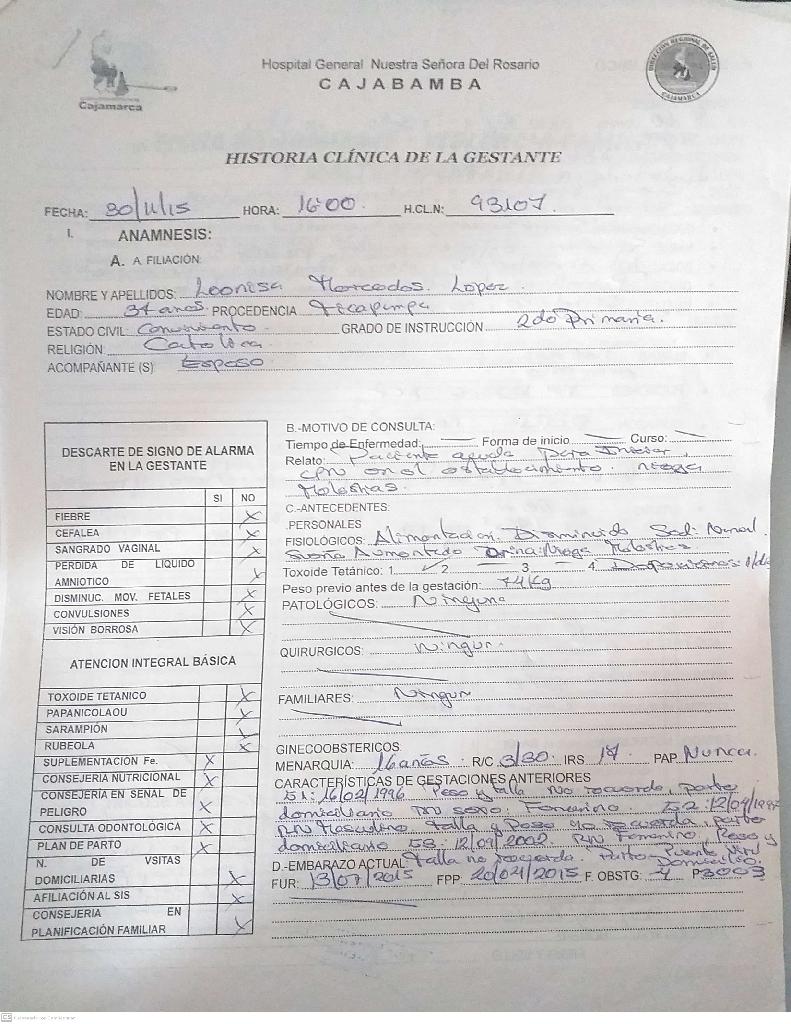 Cajamarca
Hospital General Nuestra Señora Del Rosario
CAJABAMBA
DIRECCIÓN REGIONAL DE SALUD
CAJAMARCA
HISTORIA CLÍNICA DE LA GESTANTE
FECHA: 30/11/15 HORA: 16:00 H.CL.N: 93107
I. ANAMNESIS:
A. A. FILIACIÓN
NOMBRE Y APELLIDOS: Leonisa Mercedes Lopez
EDAD: 37 anos PROCEDENCIA
ESTADO CIVIL: Conviviente GRADO DE INSTRUCCIÓN 2do Primaria.
RELIGIÓN: Catolica
ACOMPAÑANTE (S): Esposo
DESCARTE DE SIGNO DE ALARMA
EN LA GESTANTE
SI NO
FIEBRE X
CEFALEA X
SANGRADO VAGINAL X
PERDIDA DE LIQUIDO
AMNIOTICO X
DISMINUC. MOV. FETALES X
CONVULSIONES X
VISIÓN BORROSA X
ATENCION INTEGRAL BÁSICA
TOXOIDE TETANICO X
PAPANICOLAOU X
SARAMPIÓN X
RUBEOLA X
SUPLEMENTACIÓN Fe. X
CONSEJERIA NUTRICIONAL X
CONSEJERÍA EN SEÑAL DE
PELIGRO X
CONSULTA ODONTOLÓGICA X
PLAN DE PARTO X
N. DE VSITAS
DOMICILIARIAS X
AFILIACIÓN AL SIS X
CONSEJERIA EN
PLANIFICACIÓN FAMILIAR X
B.-MOTIVO DE CONSULTA:
Tiempo de Enfermedad: — Forma de inicio — Curso: —
Relato: Paciente acude para Iniciar
CPN en el establecimiento. niega
Molestias.
C.-ANTECEDENTES:
.PERSONALES
FISIOLÓGICOS: Alimentacion. Disminuido Sed: Normal
Sueño Aumentado Orina: Niega Molestias
Toxoide Tetánico: 1 ✓ 2 — 3 — 4 Deposiciones: 1/dia
Peso previo antes de la gestación: 74 Kg
PATOLÓGICOS: Ninguno
QUIRURGICOS: Ningun.
FAMILIARES: Ningun
GINECOOBSTERICOS:
MENARQUIA: 16 años R/C 3/30 IRS 17 PAP Nunca.
CARACTERÍSTICAS DE GESTACIONES ANTERIORES
G1: 16/02/1996 Peso y talla No recuerda, parto
domiciliario RN sexo Femenino. G2: 12/09/
RN Masculino talla y Peso no recuerda, parto
domiciliario G3: 12/09/2002. RN Femenino, Peso y
talla no recuerda. Parto Domicilio.
D.-EMBARAZO ACTUAL
FUR: 13/07/2015 FPP: 20/04/2015 F. OBSTG: 4 P3003